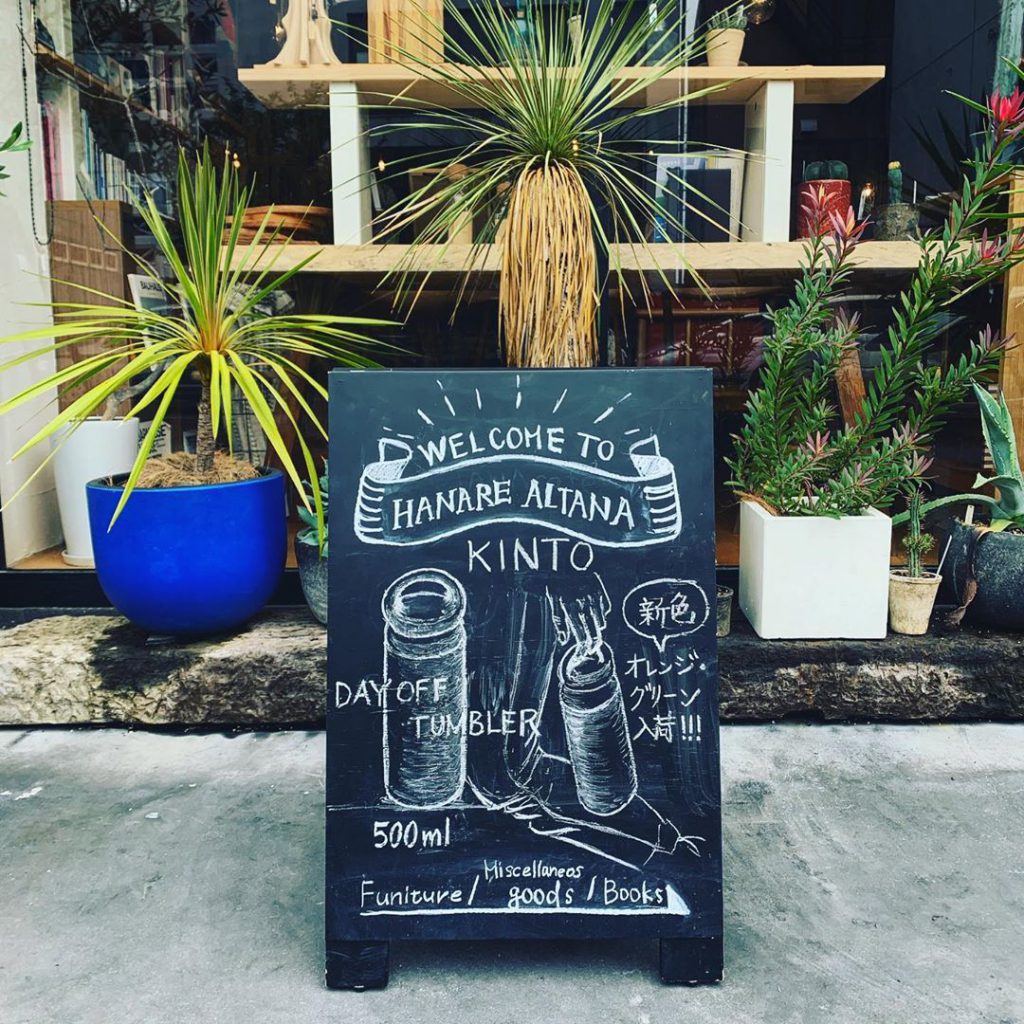 WELCOME TO
HANARE ALTANA
KINTO
新色
オレンジ・
グリーン
入荷!!!
DAY OFF
TUMBLER
500ml
Miscellaneos
Funiture / goods / Books